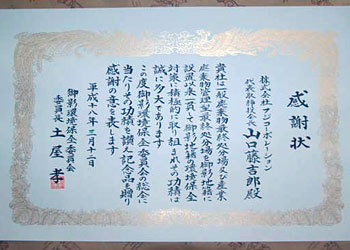 感謝状
株式会社フジコーポレーション
代表取締役社長 山口藤吉郎殿
貴社は一般廃棄物最終処分場及び産業
廃棄物管理型最終処分場を御影地籍に
設置以来一貫して御影地籍の環境保全
対策に積極的に取り組まれその功績は
誠に多大であります
この度御影環境保全委員会の総会に
当たりその功績を讃え記念品を贈り
感謝の意を表します
平成十八年三月十二日
御影環境保全委員会
委員長 土屋 孝